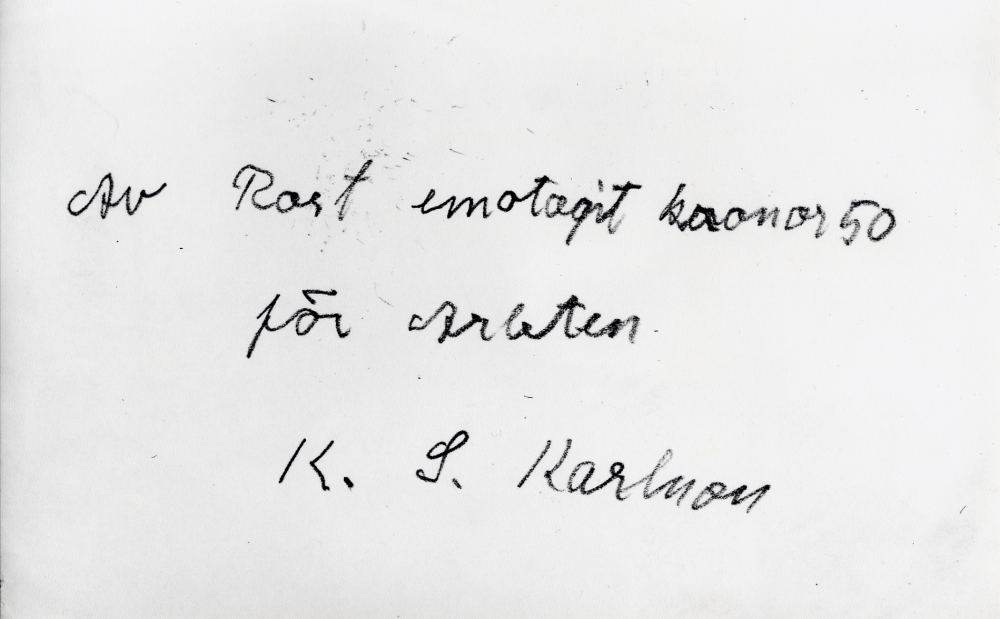 Av Rost emotagit kronor 50
för Arbeten
K. S. Karlsson